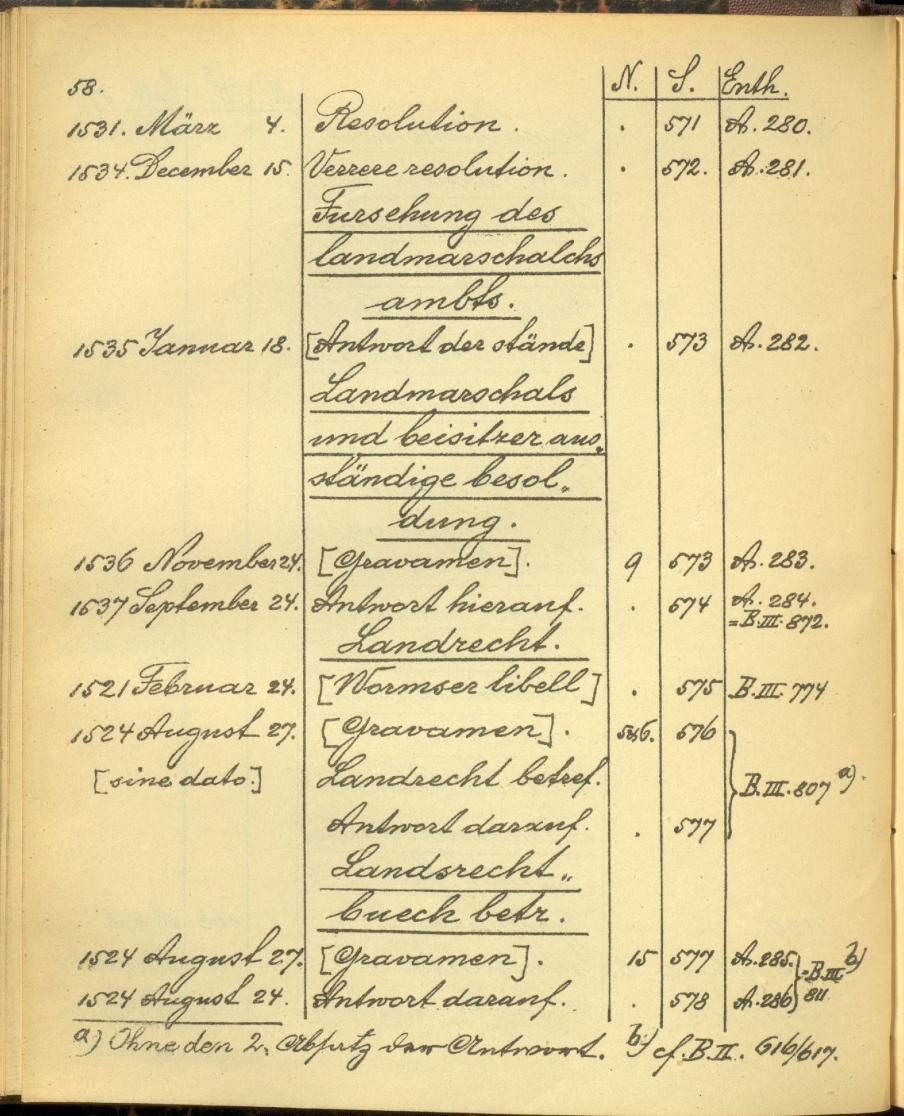 58. N. S. Enth.
1531. März 4. Resolution. . 571 A. 280.
1534. December 15. Verrere resolution. . 572. A. 281.
Fursehung des
landmarschalchs
ambts.
1535 Januar 18. [Antwort der stände] . 573 A. 282.
Landmarschals
und beisitzer aus„
ständige besol„
dung.
1536 November 24. [Gravamen]. 9 573 A. 283.
1537 September 24. Antwort hierauf. . 574 A. 284.
= B. III. 872.
Landrecht.
1521 Februar 24. [Wormser libell] . 575 B. III. 774
1524 August 27. [Gravamen]. 5u6. 576
[sine dato.] Landrecht betref. B. III. 807 a).
Antwort darauf. . 577
Landsrecht„
buech betr.
1524 August 27. [Gravamen]. 15 577 A. 285. = B. III b)
1524 August 24. Antwort darauf. . 578 A. 286 811
a) Ohne den 2. Absatz der Antwort. b.) cf. B. II. 616/617.